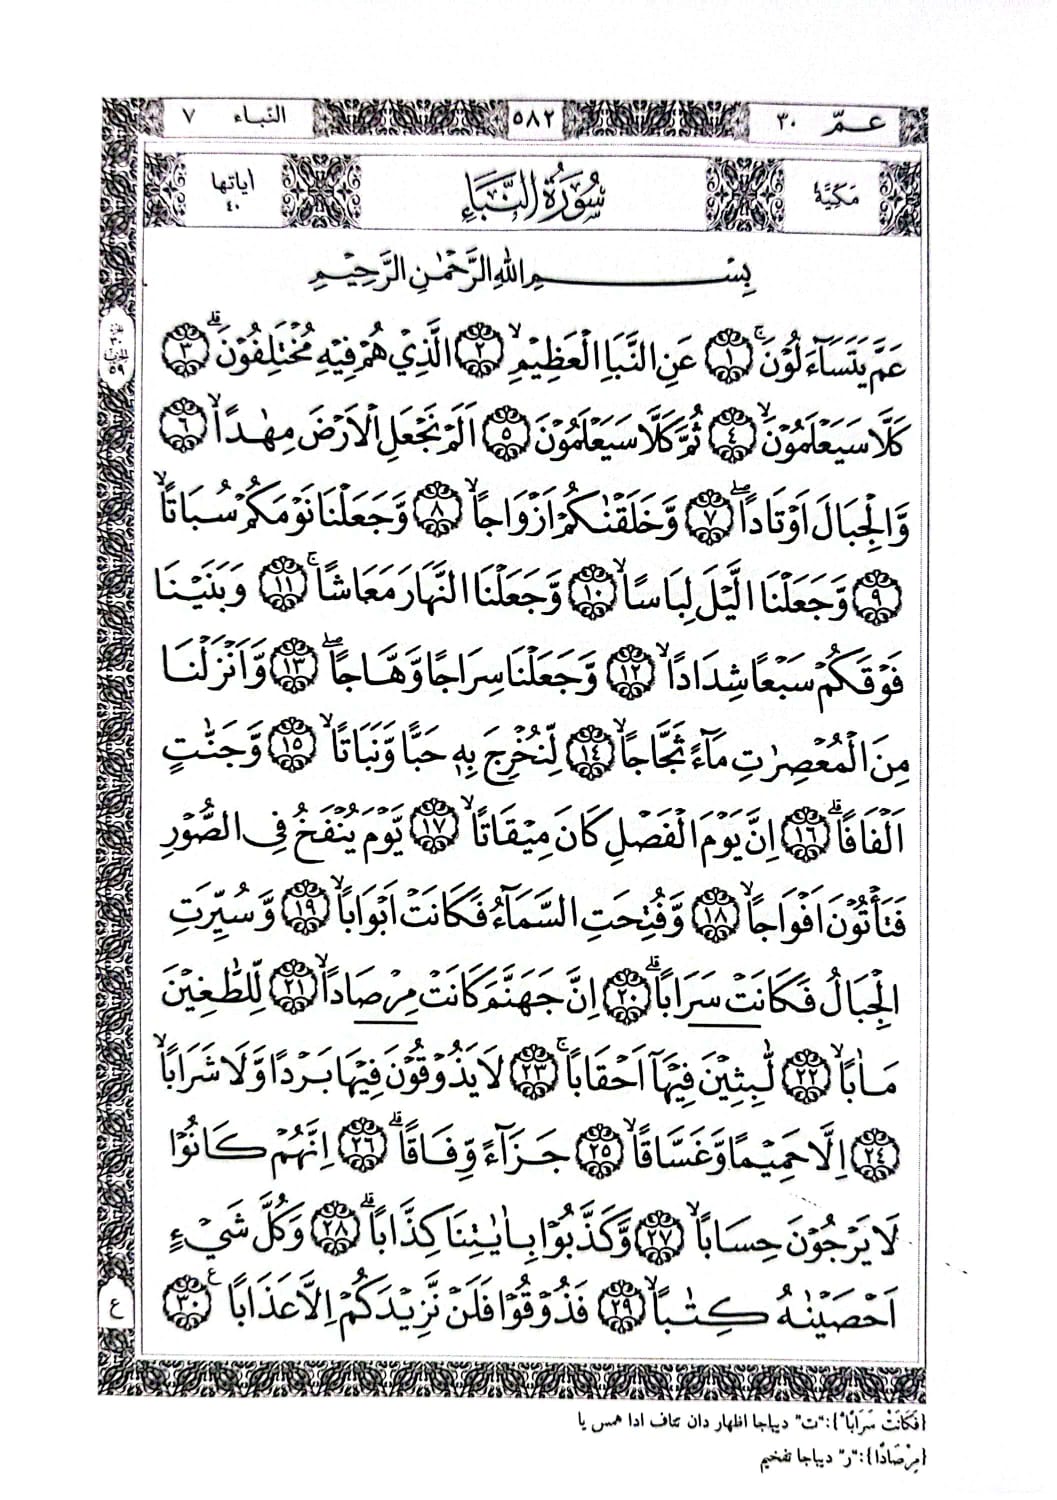 عـمّ ٣٠
٥٨٢
النّباء ٧
مَكِيَّةٌ
سُوْرَةُ النَّبَاِ
اٰياتها
٤٠
بِسْــــــــمِ اللّٰهِ الرَّحْمٰنِ الرَّحِيْمِ
عَمَّ يَتَسَآءَلُوْنَۚ ١ عَنِ النَّبَاِ الْعَظِيْمِۙ ٢ الَّذِيْ هُمْ فِيْهِ مُخْتَلِفُوْنَۗ ٣
كَلَّا سَيَعْلَمُوْنَۙ ٤ ثُمَّ كَلَّا سَيَعْلَمُوْنَ ٥ اَلَمْ نَجْعَلِ الْاَرْضَ مِهٰدًاۙ ٦
وَّالْجِبَالَ اَوْتَادًاۖ ٧ وَّخَلَقْنٰكُمْ اَزْوَاجًاۙ ٨ وَّجَعَلْنَا نَوْمَكُمْ سُبَاتًاۙ
٩ وَّجَعَلْنَا الَّيْلَ لِبَاسًاۙ ١٠ وَّجَعَلْنَا النَّهَارَ مَعَاشًاۚ ١١ وَبَنَيْنَا
فَوْقَكُمْ سَبْعًا شِدَادًاۙ ١٢ وَّجَعَلْنَا سِرَاجًا وَّهَّاجًاۖ ١٣ وَّاَنْزَلْنَا
مِنَ الْمُعْصِرٰتِ مَآءً ثَجَّاجًاۙ ١٤ لِّنُخْرِجَ بِهٖ حَبًّا وَّنَبَاتًاۙ ١٥ وَّجَنّٰتٍ
اَلْفَافًاۗ ١٦ اِنَّ يَوْمَ الْفَصْلِ كَانَ مِيْقَاتًاۙ ١٧ يَّوْمَ يُنْفَخُ فِى الصُّوْرِ
فَتَأْتُوْنَ اَفْوَاجًاۙ ١٨ وَّفُتِحَتِ السَّمَآءُ فَكَانَتْ اَبْوَابًاۙ ١٩ وَّسُيِّرَتِ
الْجِبَالُ فَكَانَتْ سَرَابًاۗ ٢٠ اِنَّ جَهَنَّمَ كَانَتْ مِرْصَادًاۙ ٢١ لِّلطّٰغِيْنَ
مَاٰبًاۙ ٢٢ لّٰبِثِيْنَ فِيْهَآ اَحْقَابًاۚ ٢٣ لَا يَذُوْقُوْنَ فِيْهَا بَرْدًا وَّلَا شَرَابًاۙ
٢٤ اِلَّا حَمِيْمًا وَّغَسَّاقًاۙ ٢٥ جَزَآءً وِّفَاقًاۗ ٢٦ اِنَّهُمْ كَانُوْا
لَا يَرْجُوْنَ حِسَابًاۙ ٢٧ وَّكَذَّبُوْا بِاٰيٰتِنَا كِذَّابًاۗ ٢٨ وَكُلَّ شَيْءٍ
اَحْصَيْنٰهُ كِتٰبًاۙ ٢٩ فَذُوْقُوْا فَلَنْ نَّزِيْدَكُمْ اِلَّا عَذَابًا ࣖ ٣٠
ع
{فَكَانَتْ سَرَابًا}:"ت" ديباچا اظهار دان تتاف ادا همس يا
{مِرْصَادًا}:"ر" ديباچا تفخيم